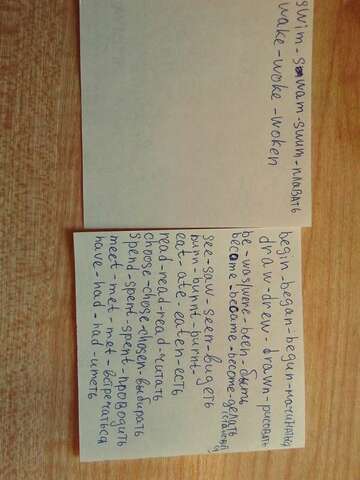 swim - swam - swum - плавать
wake - woke - woken
begin - began - begun - начинать
draw - drew - drawn - рисовать
be - was/were - been - быть
became - became - become - делать
see - saw - seen - видеть
burn - burnt - burnt -
eat - ate - eaten - есть
read - read - read - читать
choose - chose - chosen - выбирать
spend - spent - spent - проводить
meet - met - met - встречаться
have - had - had - иметь